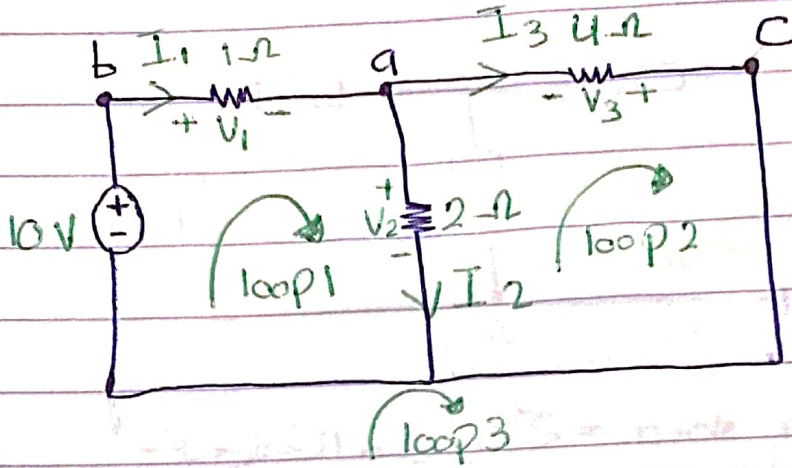 b I₁ 1Ω a I₃ 4Ω c
+ V₁ - - V₃ +
10V + - + V₂ - 2Ω
loop1 I₂ loop2
loop3